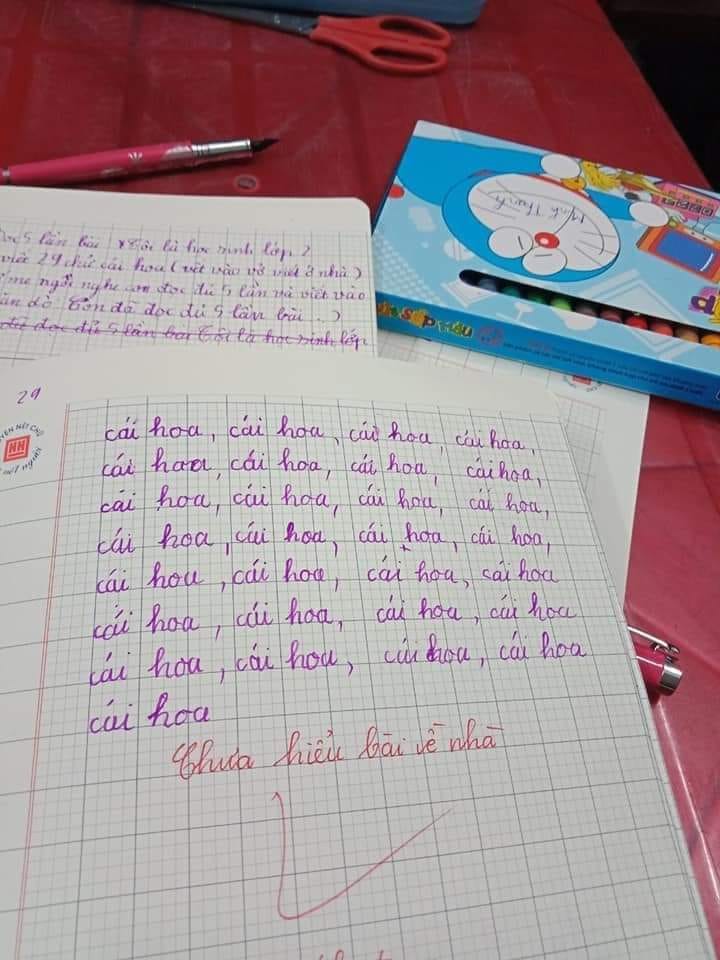 Đọc 5 lần bài "Tôi là học sinh lớp 2
viết 29 chữ cái hoa (viết vào vở viết ở nhà)
mẹ ngồi nghe con đọc đủ 5 lần và viết vào
dặn dò: Con đã đọc đủ 5 lần bài ...)
đã đọc đủ 5 lần bài Tôi là học sinh lớp
Minh Thanh
Sáp màu
29
cái hoa, cái hoa, cái hoa, cái hoa,
cái hoa, cái hoa, cái hoa, cái hoa,
cái hoa, cái hoa, cái hoa, cái hoa,
cái hoa, cái hoa, cái hoa, cái hoa,
cái hoa, cái hoa, cái hoa, cái hoa
cái hoa, cái hoa, cái hoa, cái hoa
cái hoa, cái hoa, cái hoa, cái hoa
cái hoa
Chưa hiểu bài về nhà